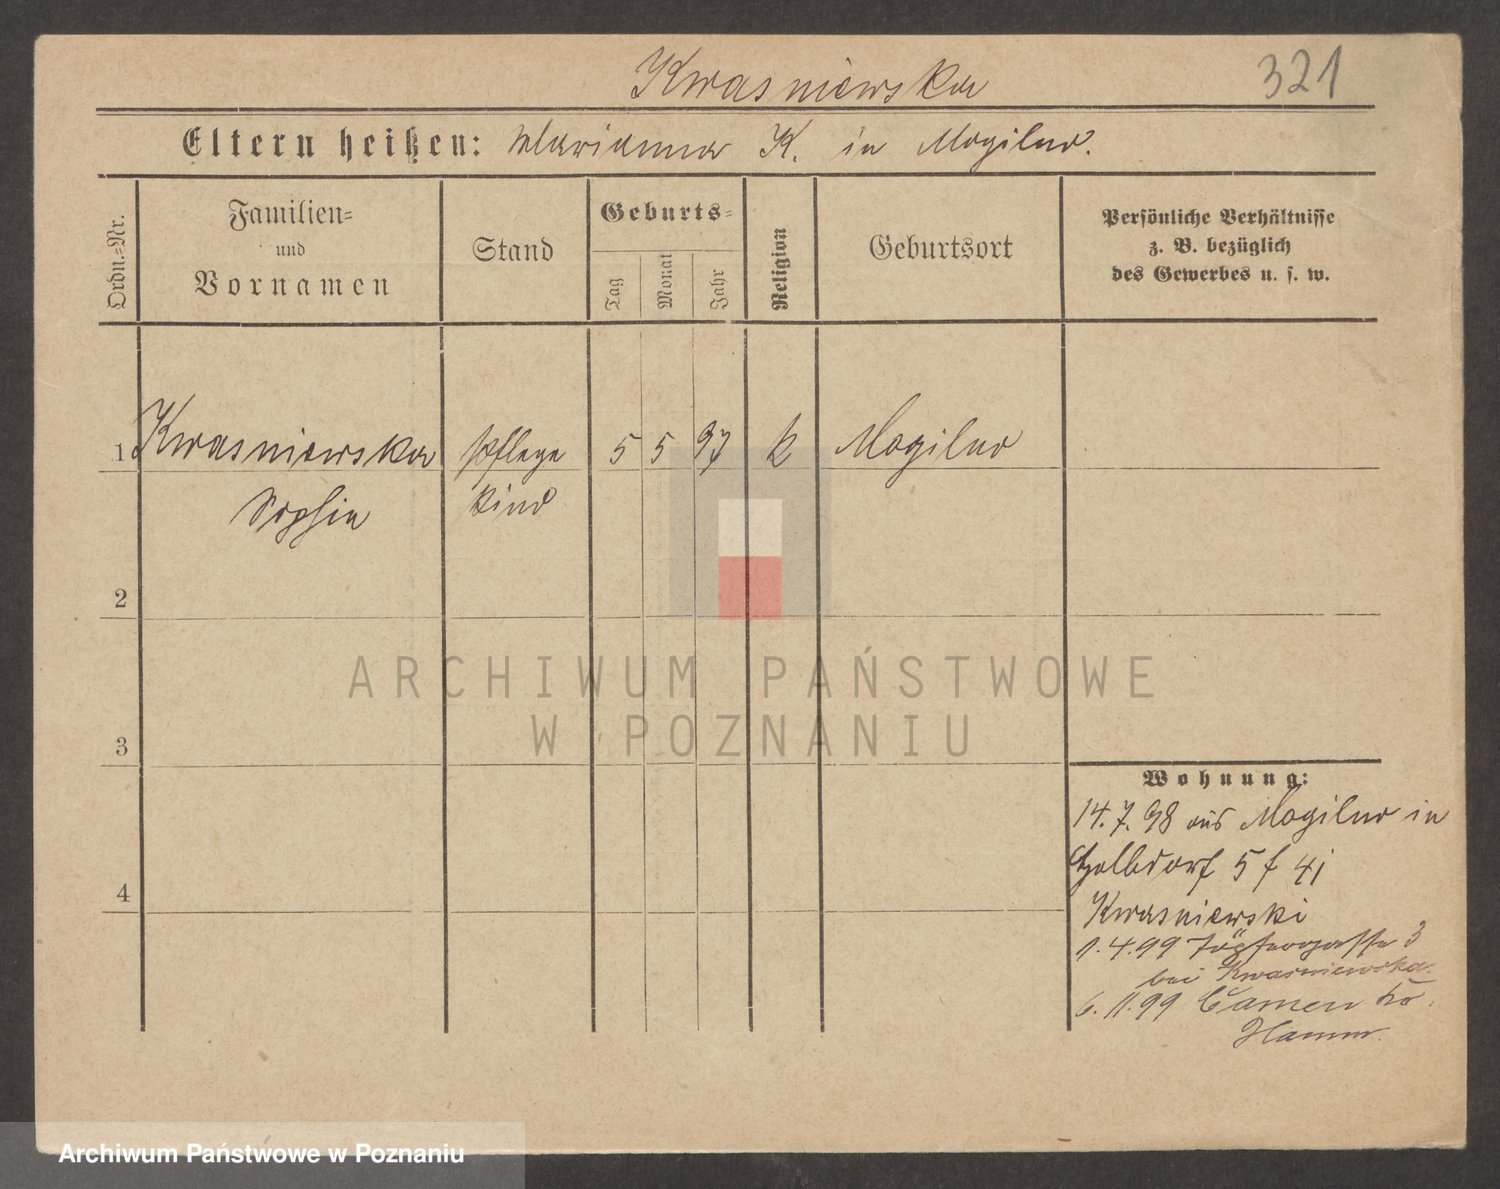 Kwasniewska
321
Eltern heißen: Marianna K. in Mogilno.
Ordn.=Nr.
Familien=
und
Vornamen
Stand
Geburts=
Tag
Monat
Jahr
Religion
Geburtsort
Persönliche Verhältnisse
z. B. bezüglich
des Gewerbes u. s. w.
1 Kwasniewska Pflege 5 5 97 k Mogilno
Sophia kind
2
3
4
ARCHIWUM PAŃSTWOWE
W POZNANIU
Wohnung:
14.7.98 aus Mogilno in
5 f
Kwasniewski
1.4.99 Töpfergasse 3
bei Kwasniewska
6.11.99 Camen
Hamm.
Archiwum Państwowe w Poznaniu